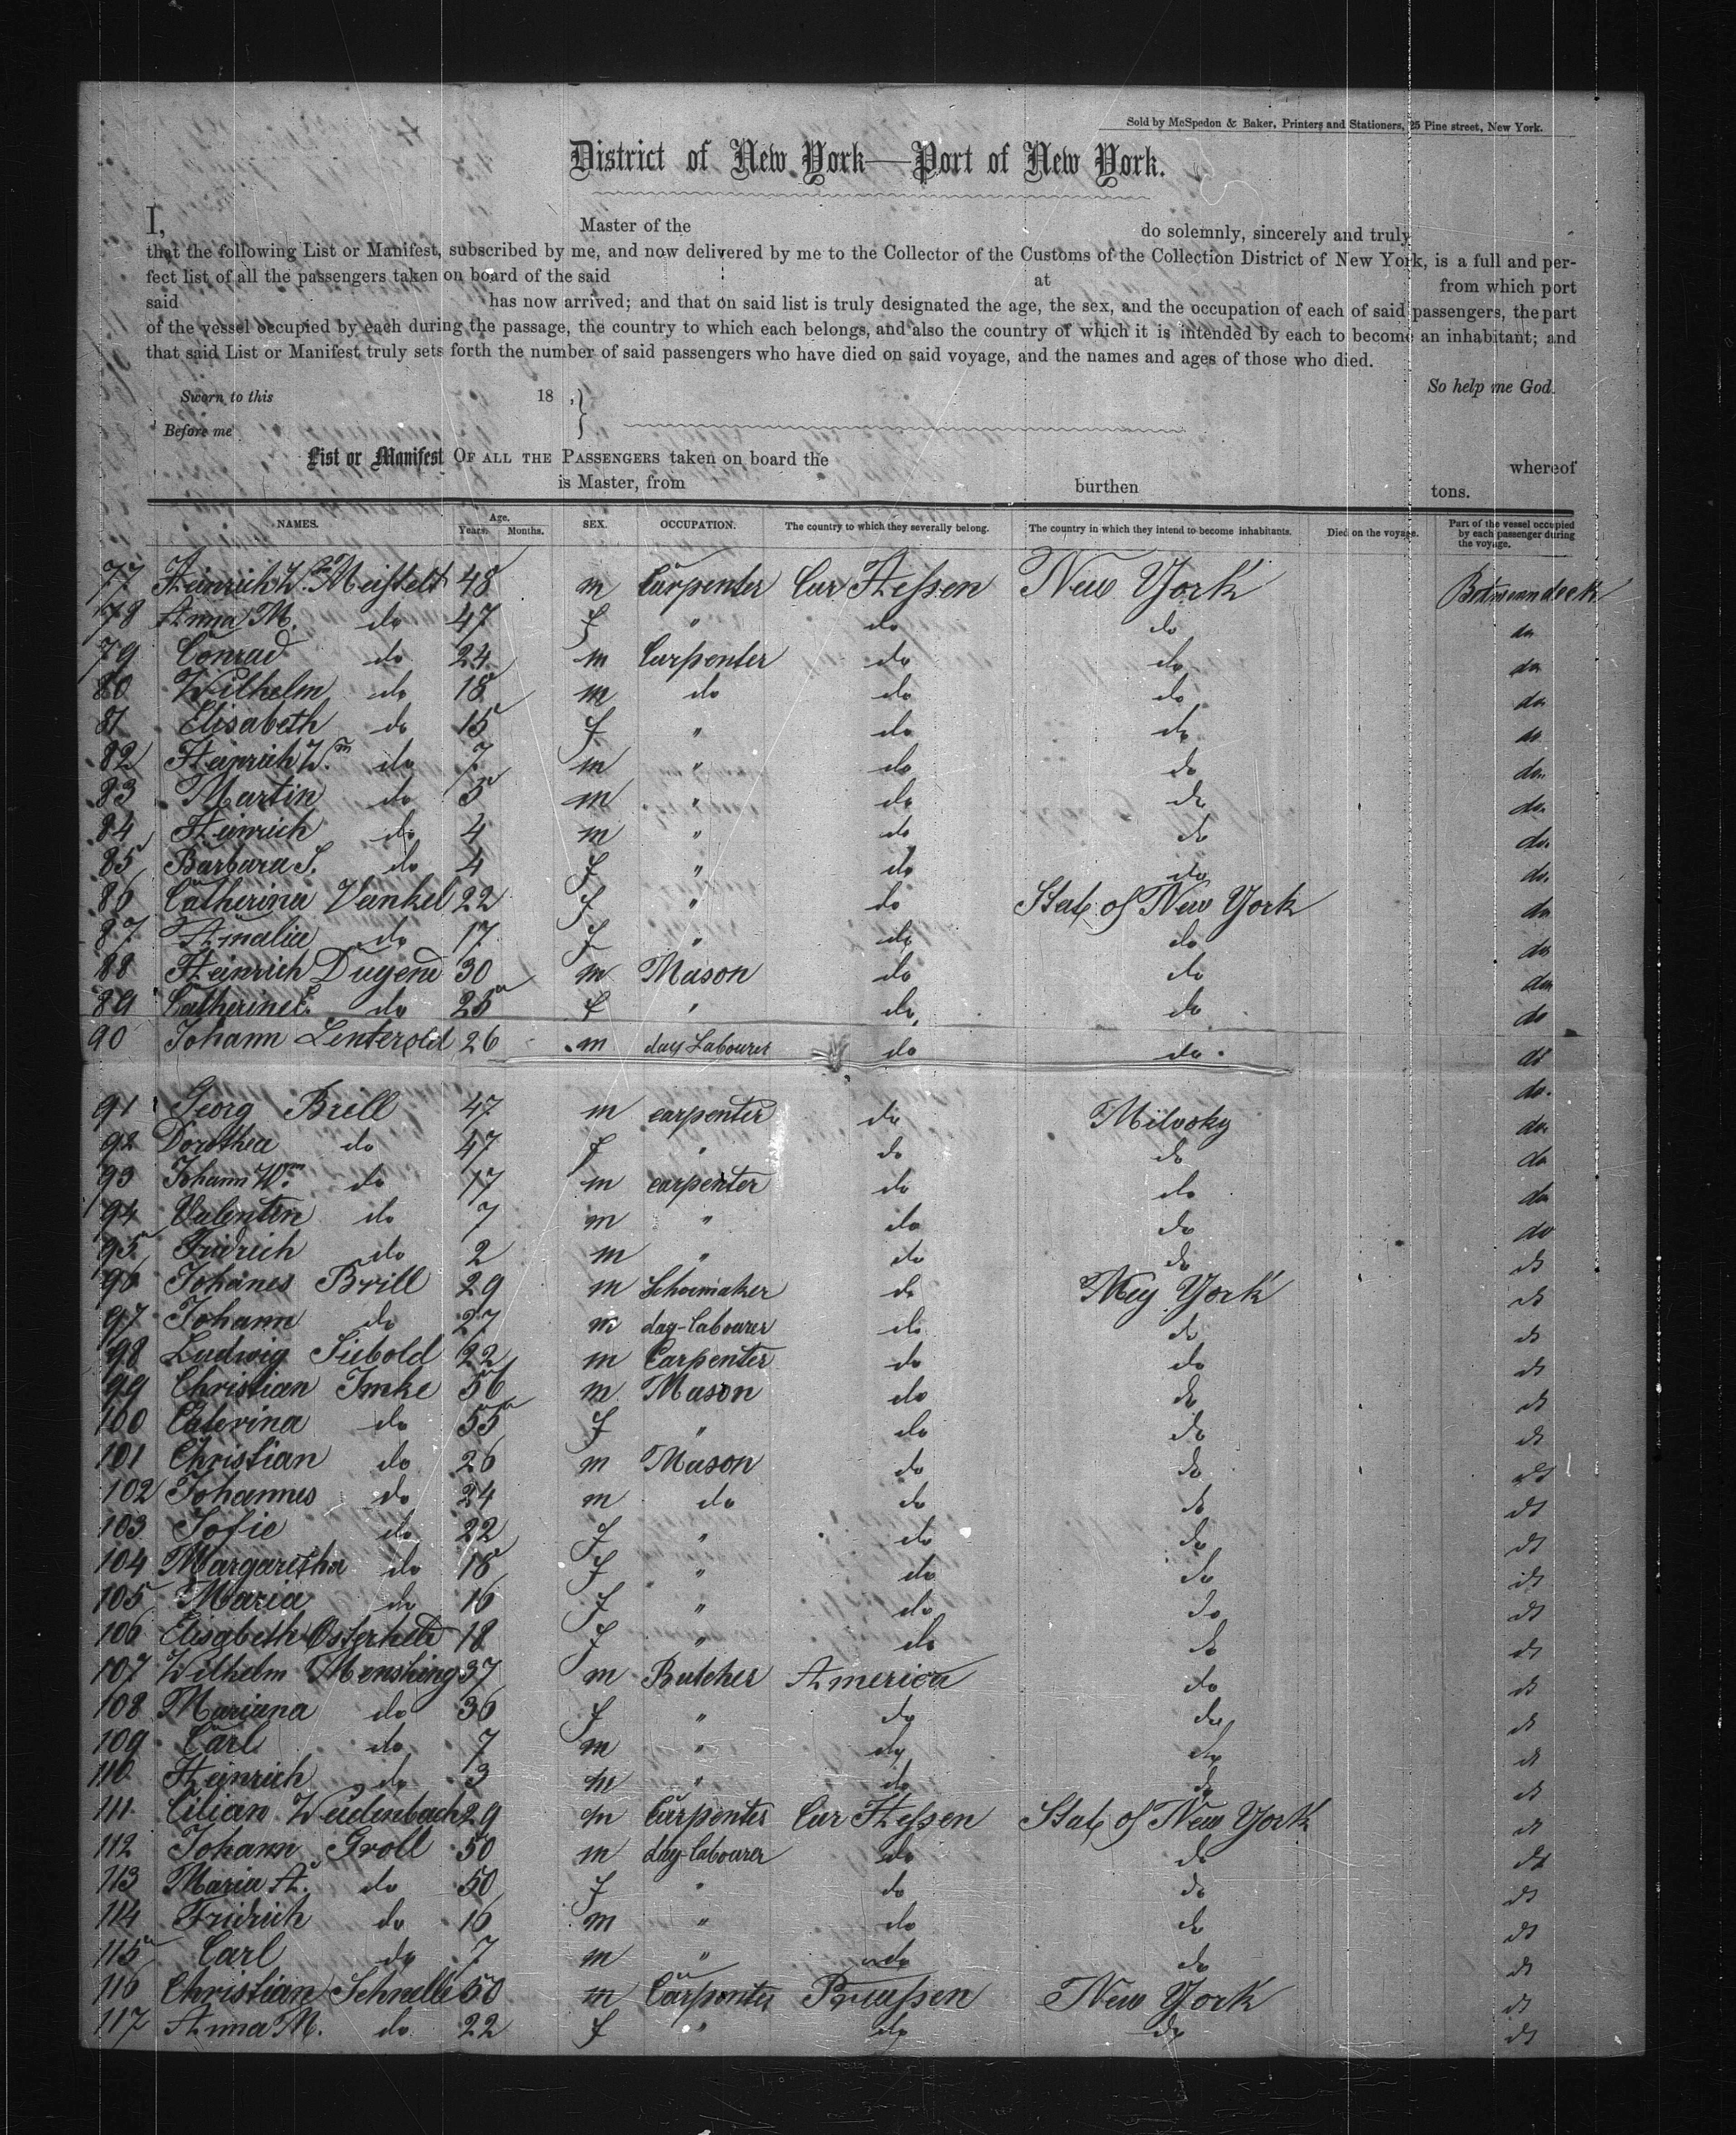 Sold by McSpedon & Baker, Printers and Stationers, 25 Pine street, New York.
District of New York—Port of New York.
I, Master of the do solemnly, sincerely and truly
that the following List or Manifest, subscribed by me, and now delivered by me to the Collector of the Customs of the Collection District of New York, is a full and per-
fect list of all the passengers taken on board of the said at from which port
said has now arrived; and that on said list is truly designated the age, the sex, and the occupation of each of said passengers, the part
of the vessel occupied by each during the passage, the country to which each belongs, and also the country of which it is intended by each to become an inhabitant; and
that said List or Manifest truly sets forth the number of said passengers who have died on said voyage, and the names and ages of those who died.
So help me God.
Sworn to this 18 ,}
Before me
List or Manifest OF ALL THE PASSENGERS taken on board the whereof
is Master, from burthen tons.
NAMES. Age. Years. Months. SEX. OCCUPATION. The country to which they severally belong. The country in which they intend to become inhabitants. Died on the voyage. Part of the vessel occupied by each passenger during the voyage.
77 Heinrich Wm 48 m Carpenter Cur Hessen New York
78 Anna M. do 47 f " do do do
79 Conrad do 24 m Carpenter do do do
80 Wilhelm do 18 m do do do do
81 Elisabeth do 15 f " do do do
82 Heinrich Wm do 7 m " do do do
83 Martin do 5 m " do do do
84 Heinrich do 4 m " do do do
85 Barbara S. do 4 f " do do do
86 Catherina Vankel 22 f " do State of New York do
87 Amalia do 17 f " do do do
88 Heinrich Dugend 30 m Mason do do do
89 Catherine E. do 25 f " do do do
90 Johann Lenterold 26 m day Labourer do do do
do.
91 Georg Brell 47 m carpenter do Milvoky do
92 Dorothea do 47 f " do do do
93 Johann Wm do 17 m carpenter do do do
94 Valentin do 7 m " do do do
95 Fridrich do 2 m " do do do
96 Johanes Brill 29 m Schoemaker do Ney York do
97 Johann do 27 m day-labourer do do do
98 Ludwig Siebold 22 m Carpenter do do do
99 Christian Imke 56 m Mason do do do
100 Caterina do 55 f " do do do
101 Christian do 26 m Mason do do do
102 Johannes do 24 m do do do do
103 Sofie do 22 f " do do do
104 Margaretha do 18 f " do do do
105 Maria do 16 f " do do do
106 Elisabeth Osterheld 18 f " do do do
107 Wilhelm Menshing 37 m Butcher America do do
108 Mariana do 36 f " do do do
109 Carl do 7 m " do do do
110 Heinrich do 3 m " do do do
111 Cilian Weidenbach 29 m Carpenter Cur Hessen State of New York do
112 Johann Groll 50 m day-labourer do do do
113 Maria A. do 50 f " do do do
114 Fridrich do 16 m " do do do
115 Carl do 7 m " do do do
116 Christian Schnelle 50 m Carpenter Preussen New York do
117 Anna M. do 22 f " do do do